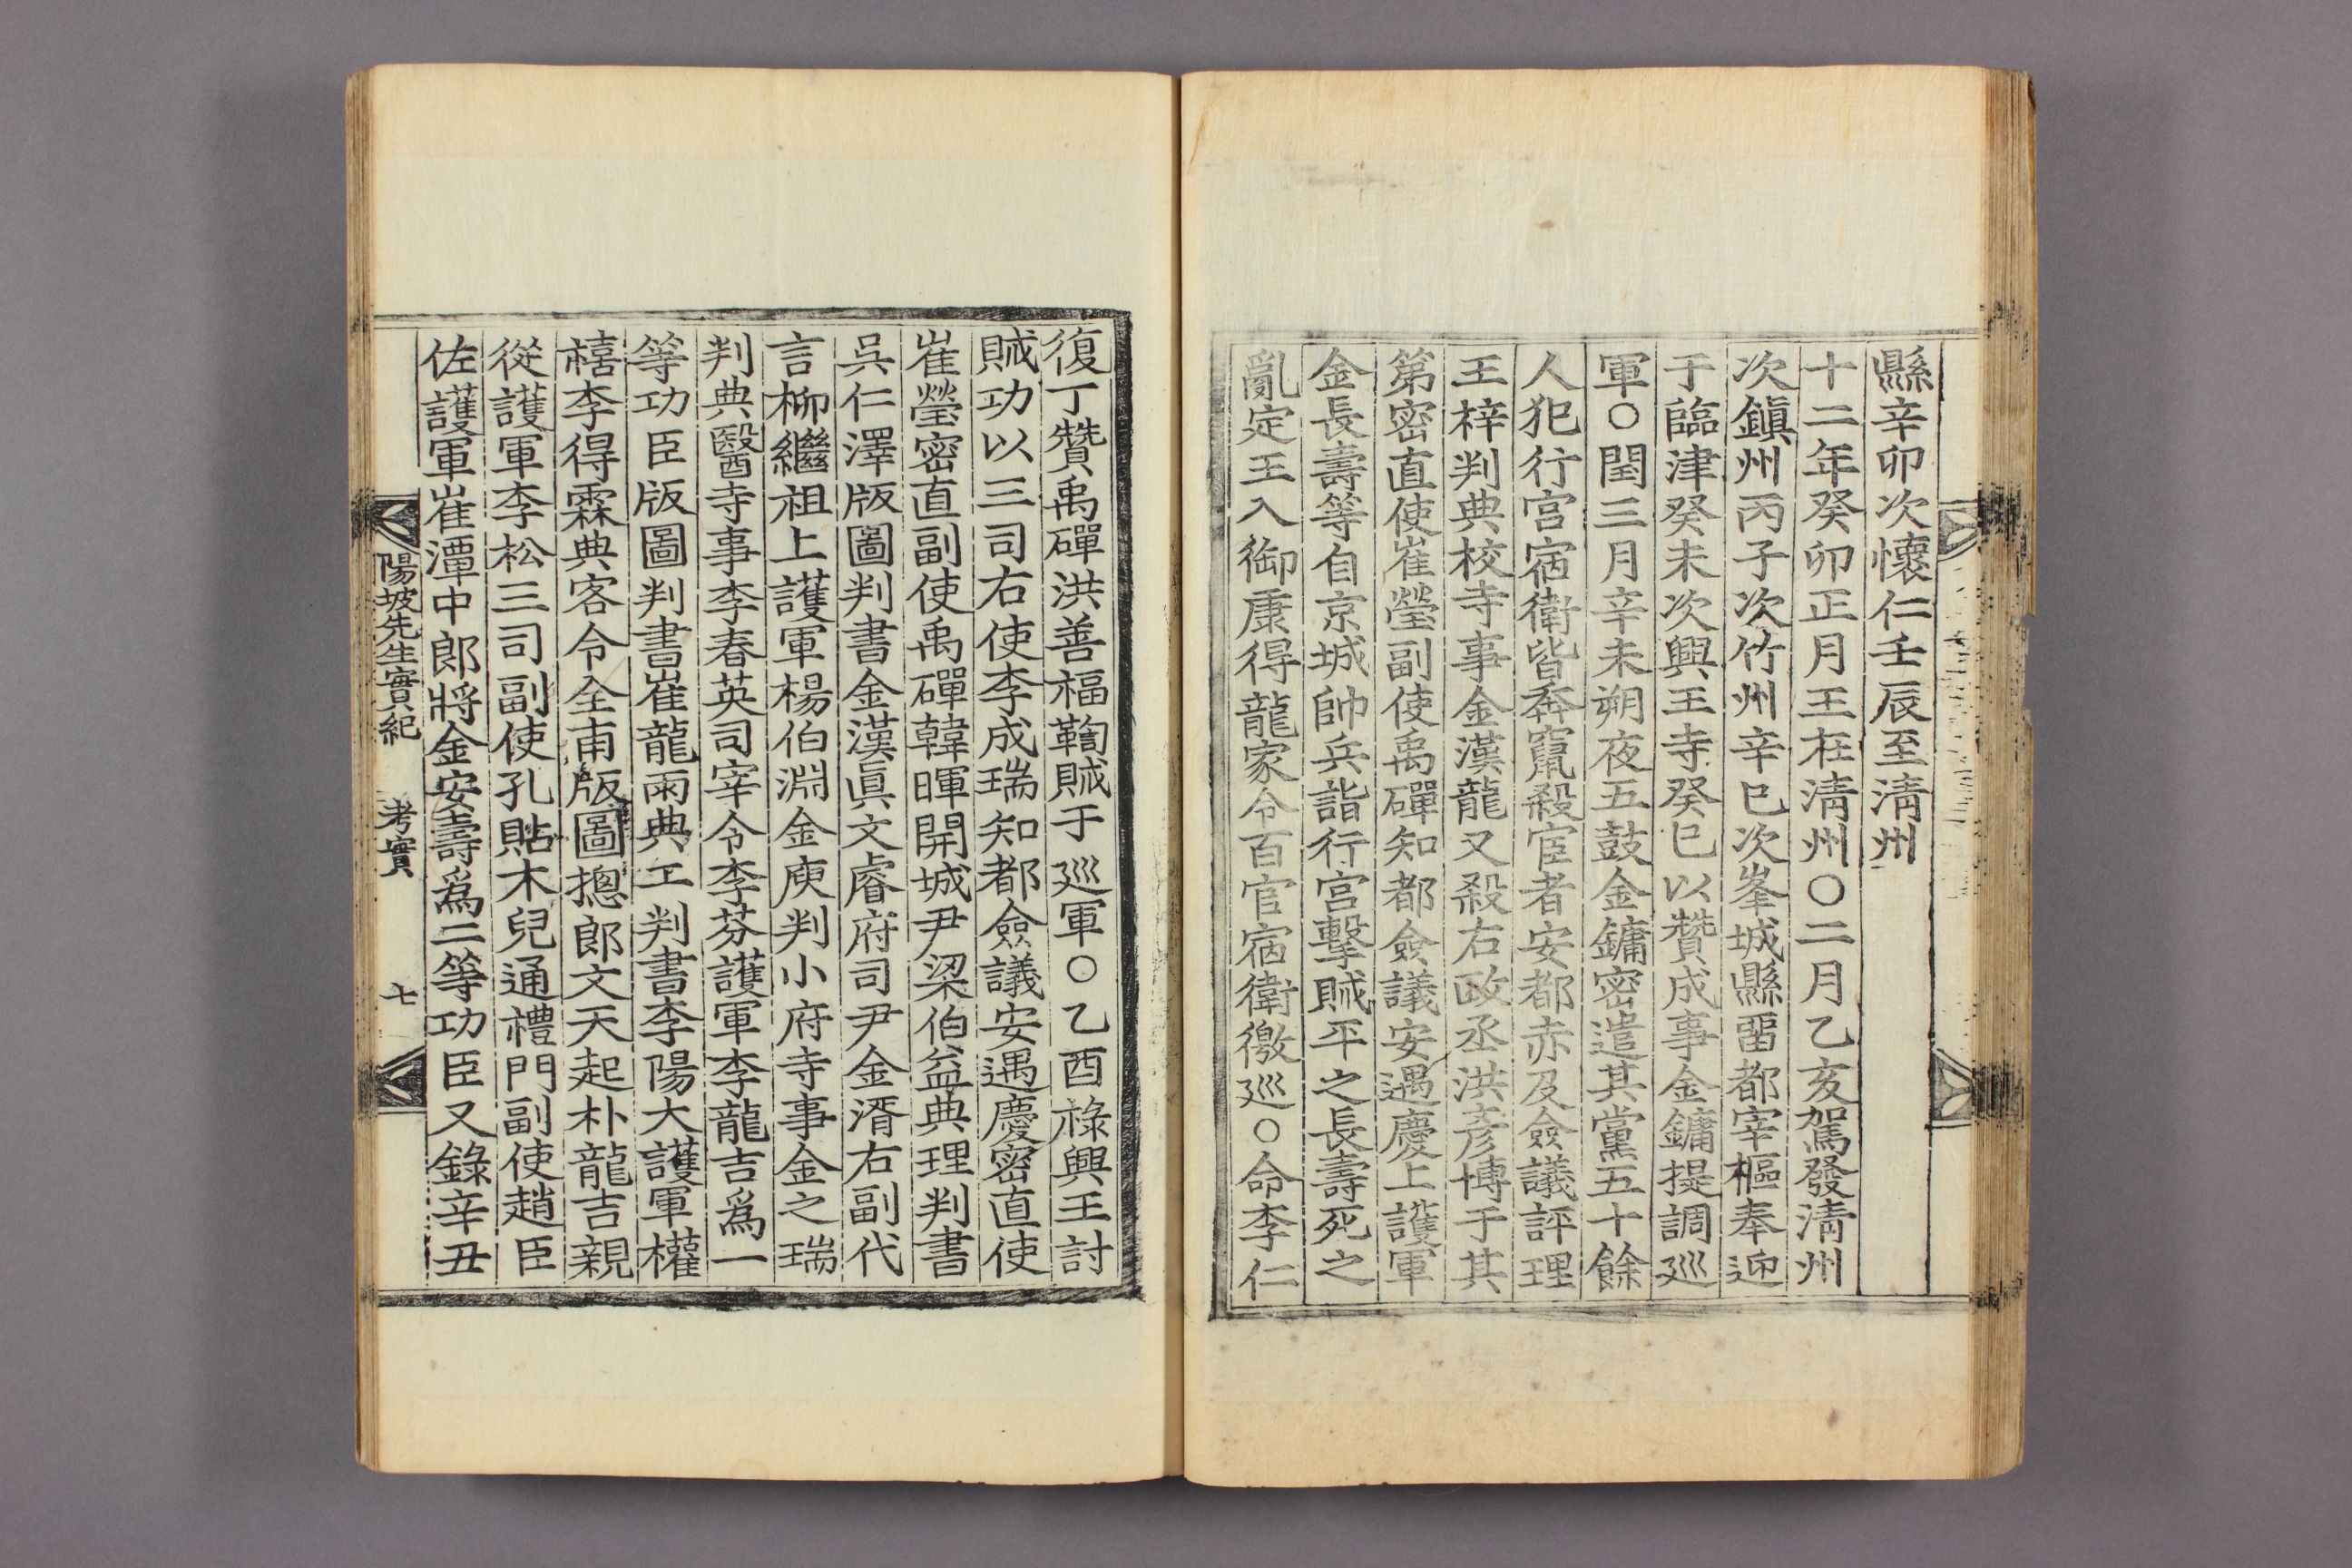 縣辛卯次懷仁壬辰至淸州
十二年癸卯正月王在淸州○二月乙亥駕發淸州
次鎭州丙子次竹州辛巳次峯城縣留都宰樞奉迎
于臨津癸未次興王寺癸巳以贊成事金鏞提調巡
軍○閏三月辛未朔夜五鼓金鏞密遣其黨五十餘
人犯行宮宿衛皆奔竄殺宦者安都赤及僉議評理
王梓判典校寺事金漢龍又殺右政丞洪彥博于其
第密直使崔瑩副使禹磾知都僉議安遇慶上護軍
金長壽等自京城帥兵詣行宮擊賊平之長壽死之
亂定王入御康得龍家令百官宿衛徼巡○命李仁
復丁贊禹磾洪善福鞫賊于巡軍○乙酉祿興王討
賊功以三司右使李成瑞知都僉議安遇慶密直使
崔瑩密直副使禹磾韓暉開城尹梁伯益典理判書
吳仁澤版圖判書金漢眞文睿府司尹金湑右副代
言柳繼祖上護軍楊伯淵金庾判小府寺事金之瑞
判典醫寺事李春英司宰令李芬護軍李龍吉爲一
等功臣版圖判書崔龍雨典工判書李陽大護軍權
禧李得霖典客令全甫版圖摠郞文天起朴龍吉親
從護軍李松三司副使孔貼木兒通禮門副使趙臣
佐護軍崔潭中郞將金安壽爲二等功臣又錄辛丑
陽坡先生實紀 考實 七